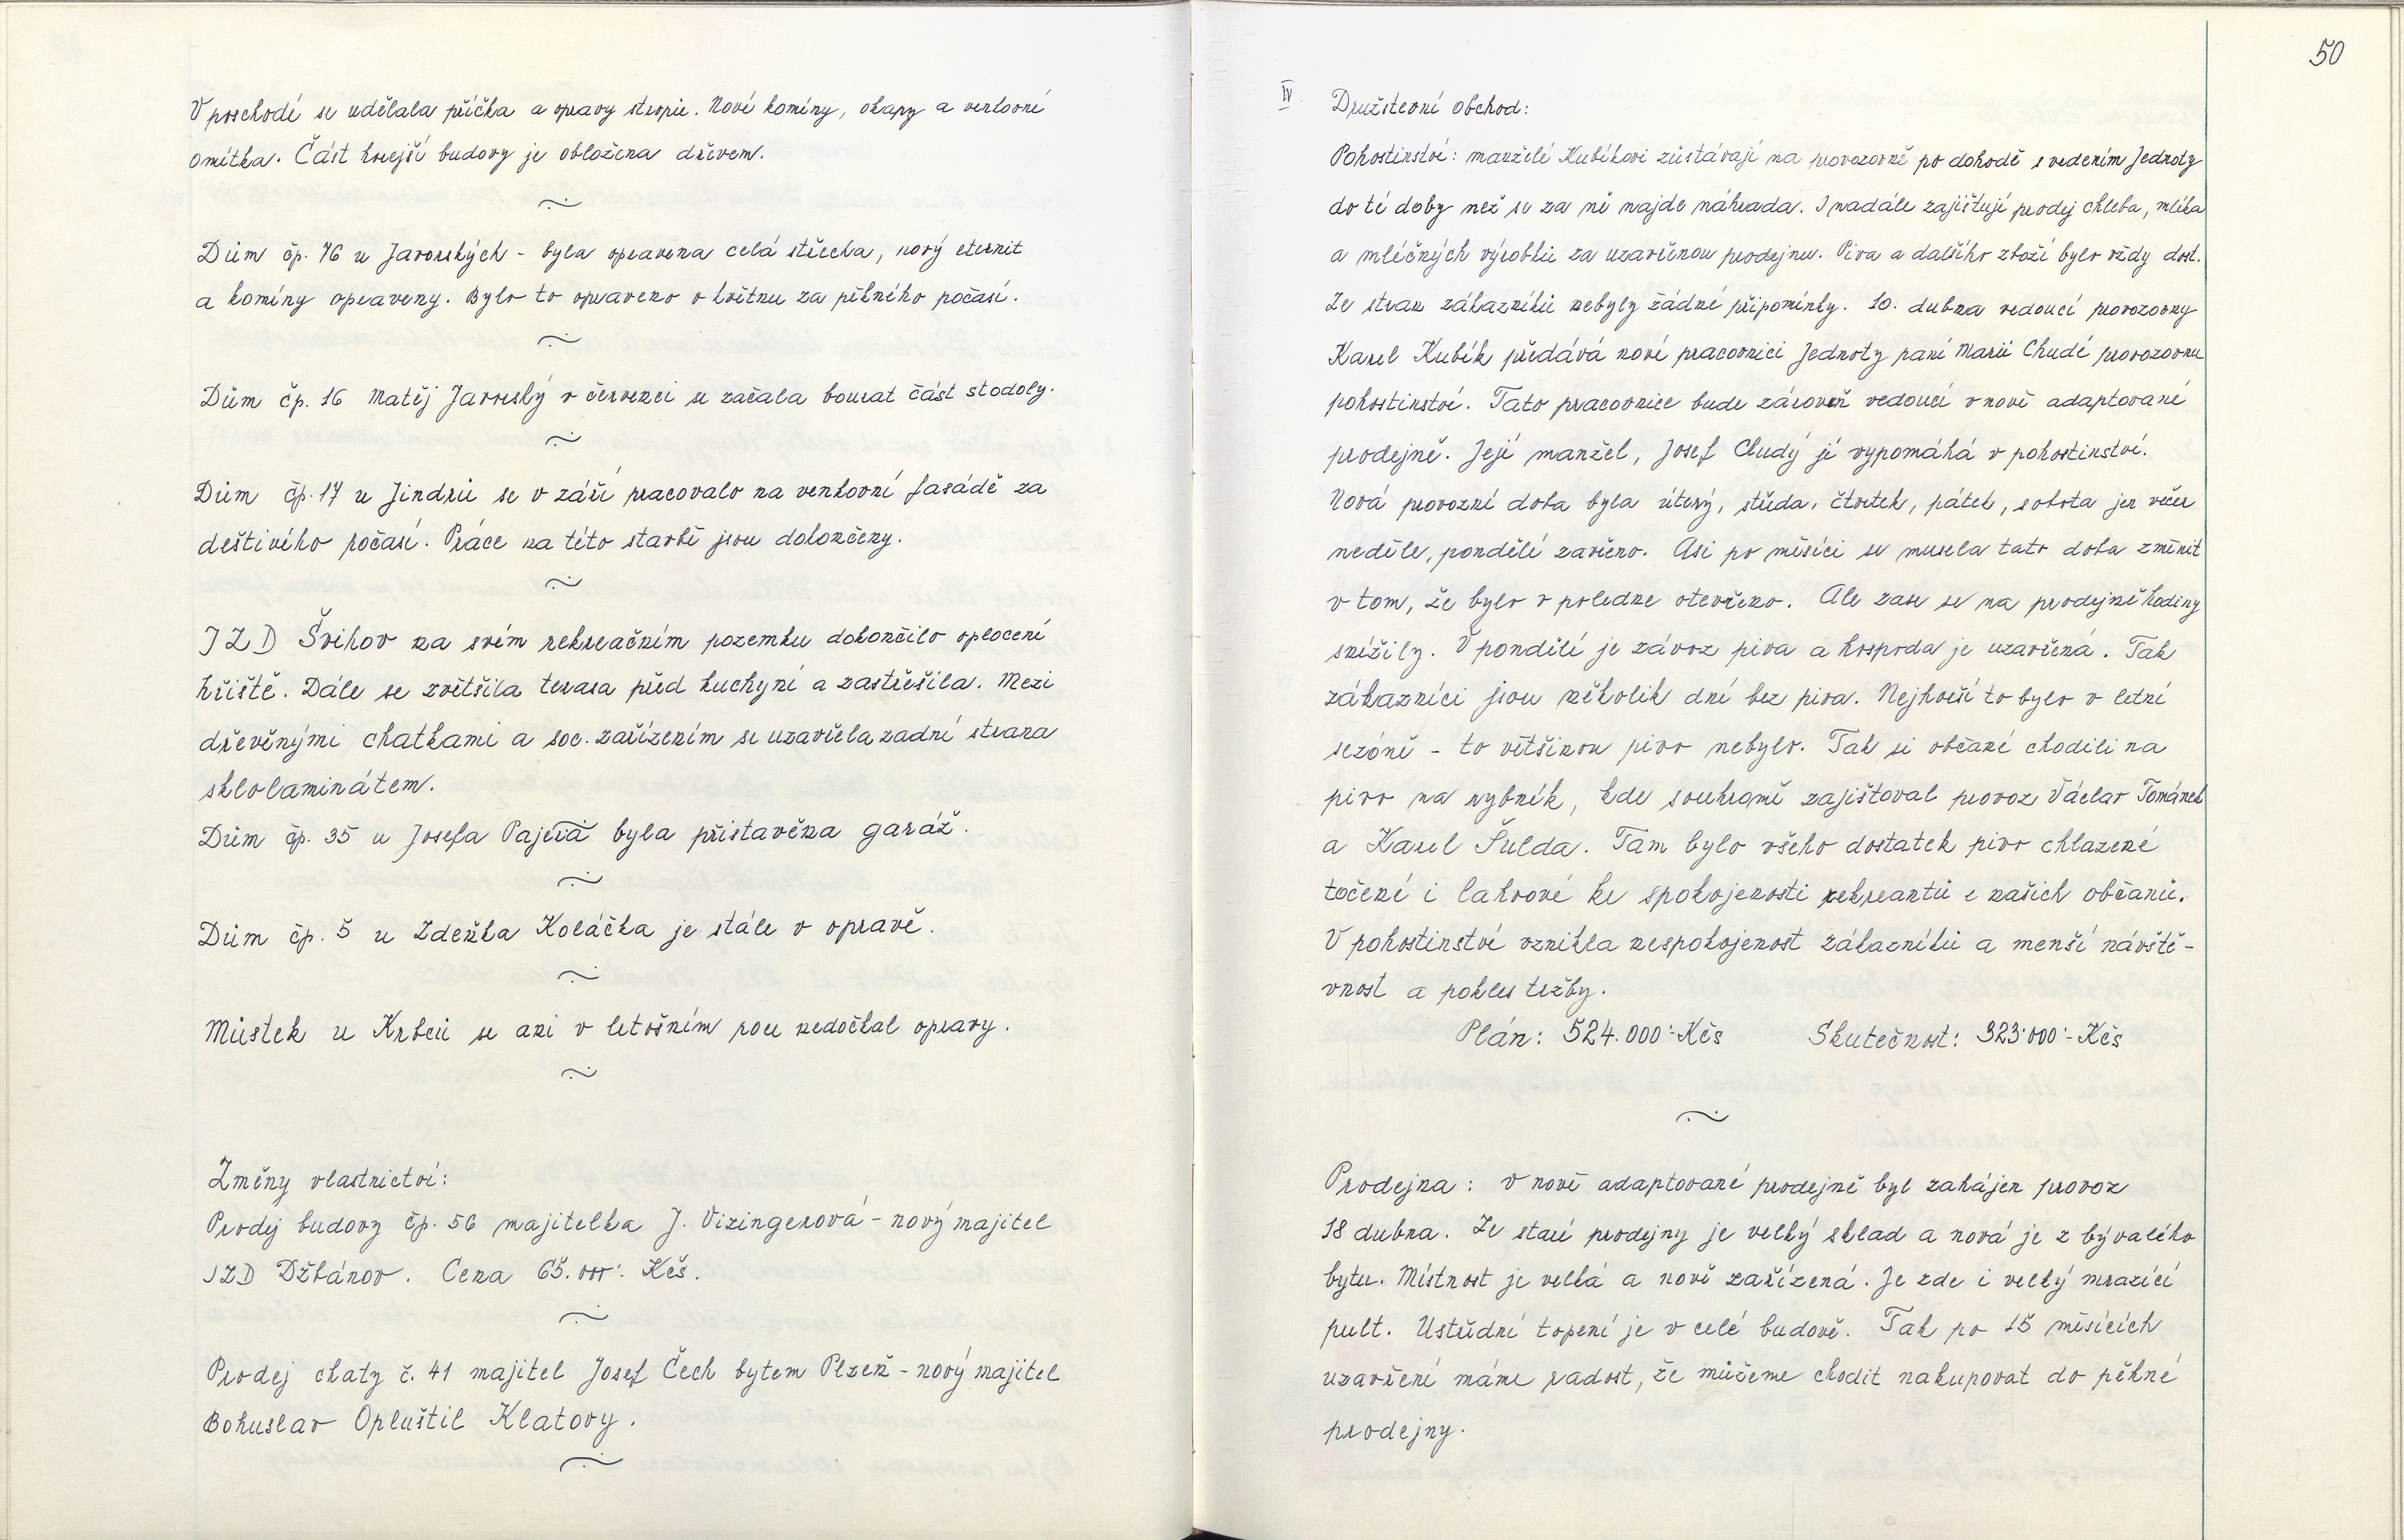 V poschodí se udělala příčka a opravy stropů. Nové komíny, okapy a venkovní
omítka. Část hořejší budovy je obložena dřevem.
Dům čp. 76 u Javorských - byla opravena celá střecha, nový eternit
a komíny opraveny. Bylo to opraveno v květnu za pěkného počasí.
Dům čp. 16 Matěj Javorský v červenci se začala bourat část stodoly.
Dům čp. 17 u Jindrů se v září pracovalo na venkovní fasádě za
deštivého počasí. Práce na této stavbě jsou dokončeny.
JZD Švihov na svém rekreačním pozemku dokončilo oplocení
hřiště. Dále se zvětšila terasa před kuchyní a zastřešila. Mezi
dřevěnými chatkami a soc. zařízením se uzavřela zadní strana
sklolaminátem.
Dům čp. 35 u Josefa Pajera byla přistavěna garáž.
Dům čp. 5 u Zdeňka Koláčka je stále v opravě.
Můstek u Krbců se ani v letošním roce nedočkal opravy.
Změny vlastnictví:
Prodej budovy čp. 56 majitelka J. Vizingerová - nový majitel
JZD Džbánov. Cena 65.000.- Kčs.
Prodej chaty č. 41 majitel Josef Čech bytem Plzeň - nový majitel
Bohuslav Opluštil Klatovy.
50
IV. Družstevní obchod:
Pohostinství: manželé Kubíkovi zůstávají na provozovně po dohodě s vedením Jednoty
do té doby než se za ně najde náhrada. I nadále zajištují prodej chleba, mléka
a mléčných výrobků za uzavřenou prodejnu. Piva a dalšího zboží bylo vždy dost.
Ze stran zákazníků nebyly žádné připomínky. 10. dubna vedoucí provozovny
Karel Kubík předává nové pracovnici Jednoty paní Marii Chudé provozovnu
pohostinství. Tato pracovnice bude zároveň vedoucí v nově adaptované
prodejně. Její manžel, Josef Chudý jí vypomáhá v pohostinství.
Nová provozní doba byla úterý, středa, čtvrtek, pátek, sobota jen večer
neděle, pondělí zavřeno. Asi po měsíci se musela tato doba změnit
v tom, že bylo v poledne otevřeno. Ale zase se na prodejně hodiny
snížily. V pondělí je závoz piva a hospoda je uzavřená. Tak
zákazníci jsou několik dní bez piva. Nejhorší to bylo v letní
sezóně - to většinou pivo nebylo. Tak si občané chodili na
pivo na rybník, kde souhromě zajištoval provoz Václav Tománek
a Karel Šulda. Tam bylo všeho dostatek pivo chlazené
točené i lahvové ke spokojenosti rekreantů i našich občanů.
V pohostinství vznikla nespokojenost zákazníků a menší návště-
vnost a pokles tržby.
Plán: 524.000.- Kčs Skutečnost: 323.000.- Kčs
Prodejna: V nově adaptované prodejně byl zahájen provoz
18 dubna. Ze staré prodejny je velký sklad a nová je z bývalého
bytu. Místnost je velká a nově zařízená. Je zde i velký mrazící
pult. Ústřední topení je v celé budově. Tak po 15 měsících
uzavření máme radost, že můžeme chodit nakupovat do pěkné
prodejny.